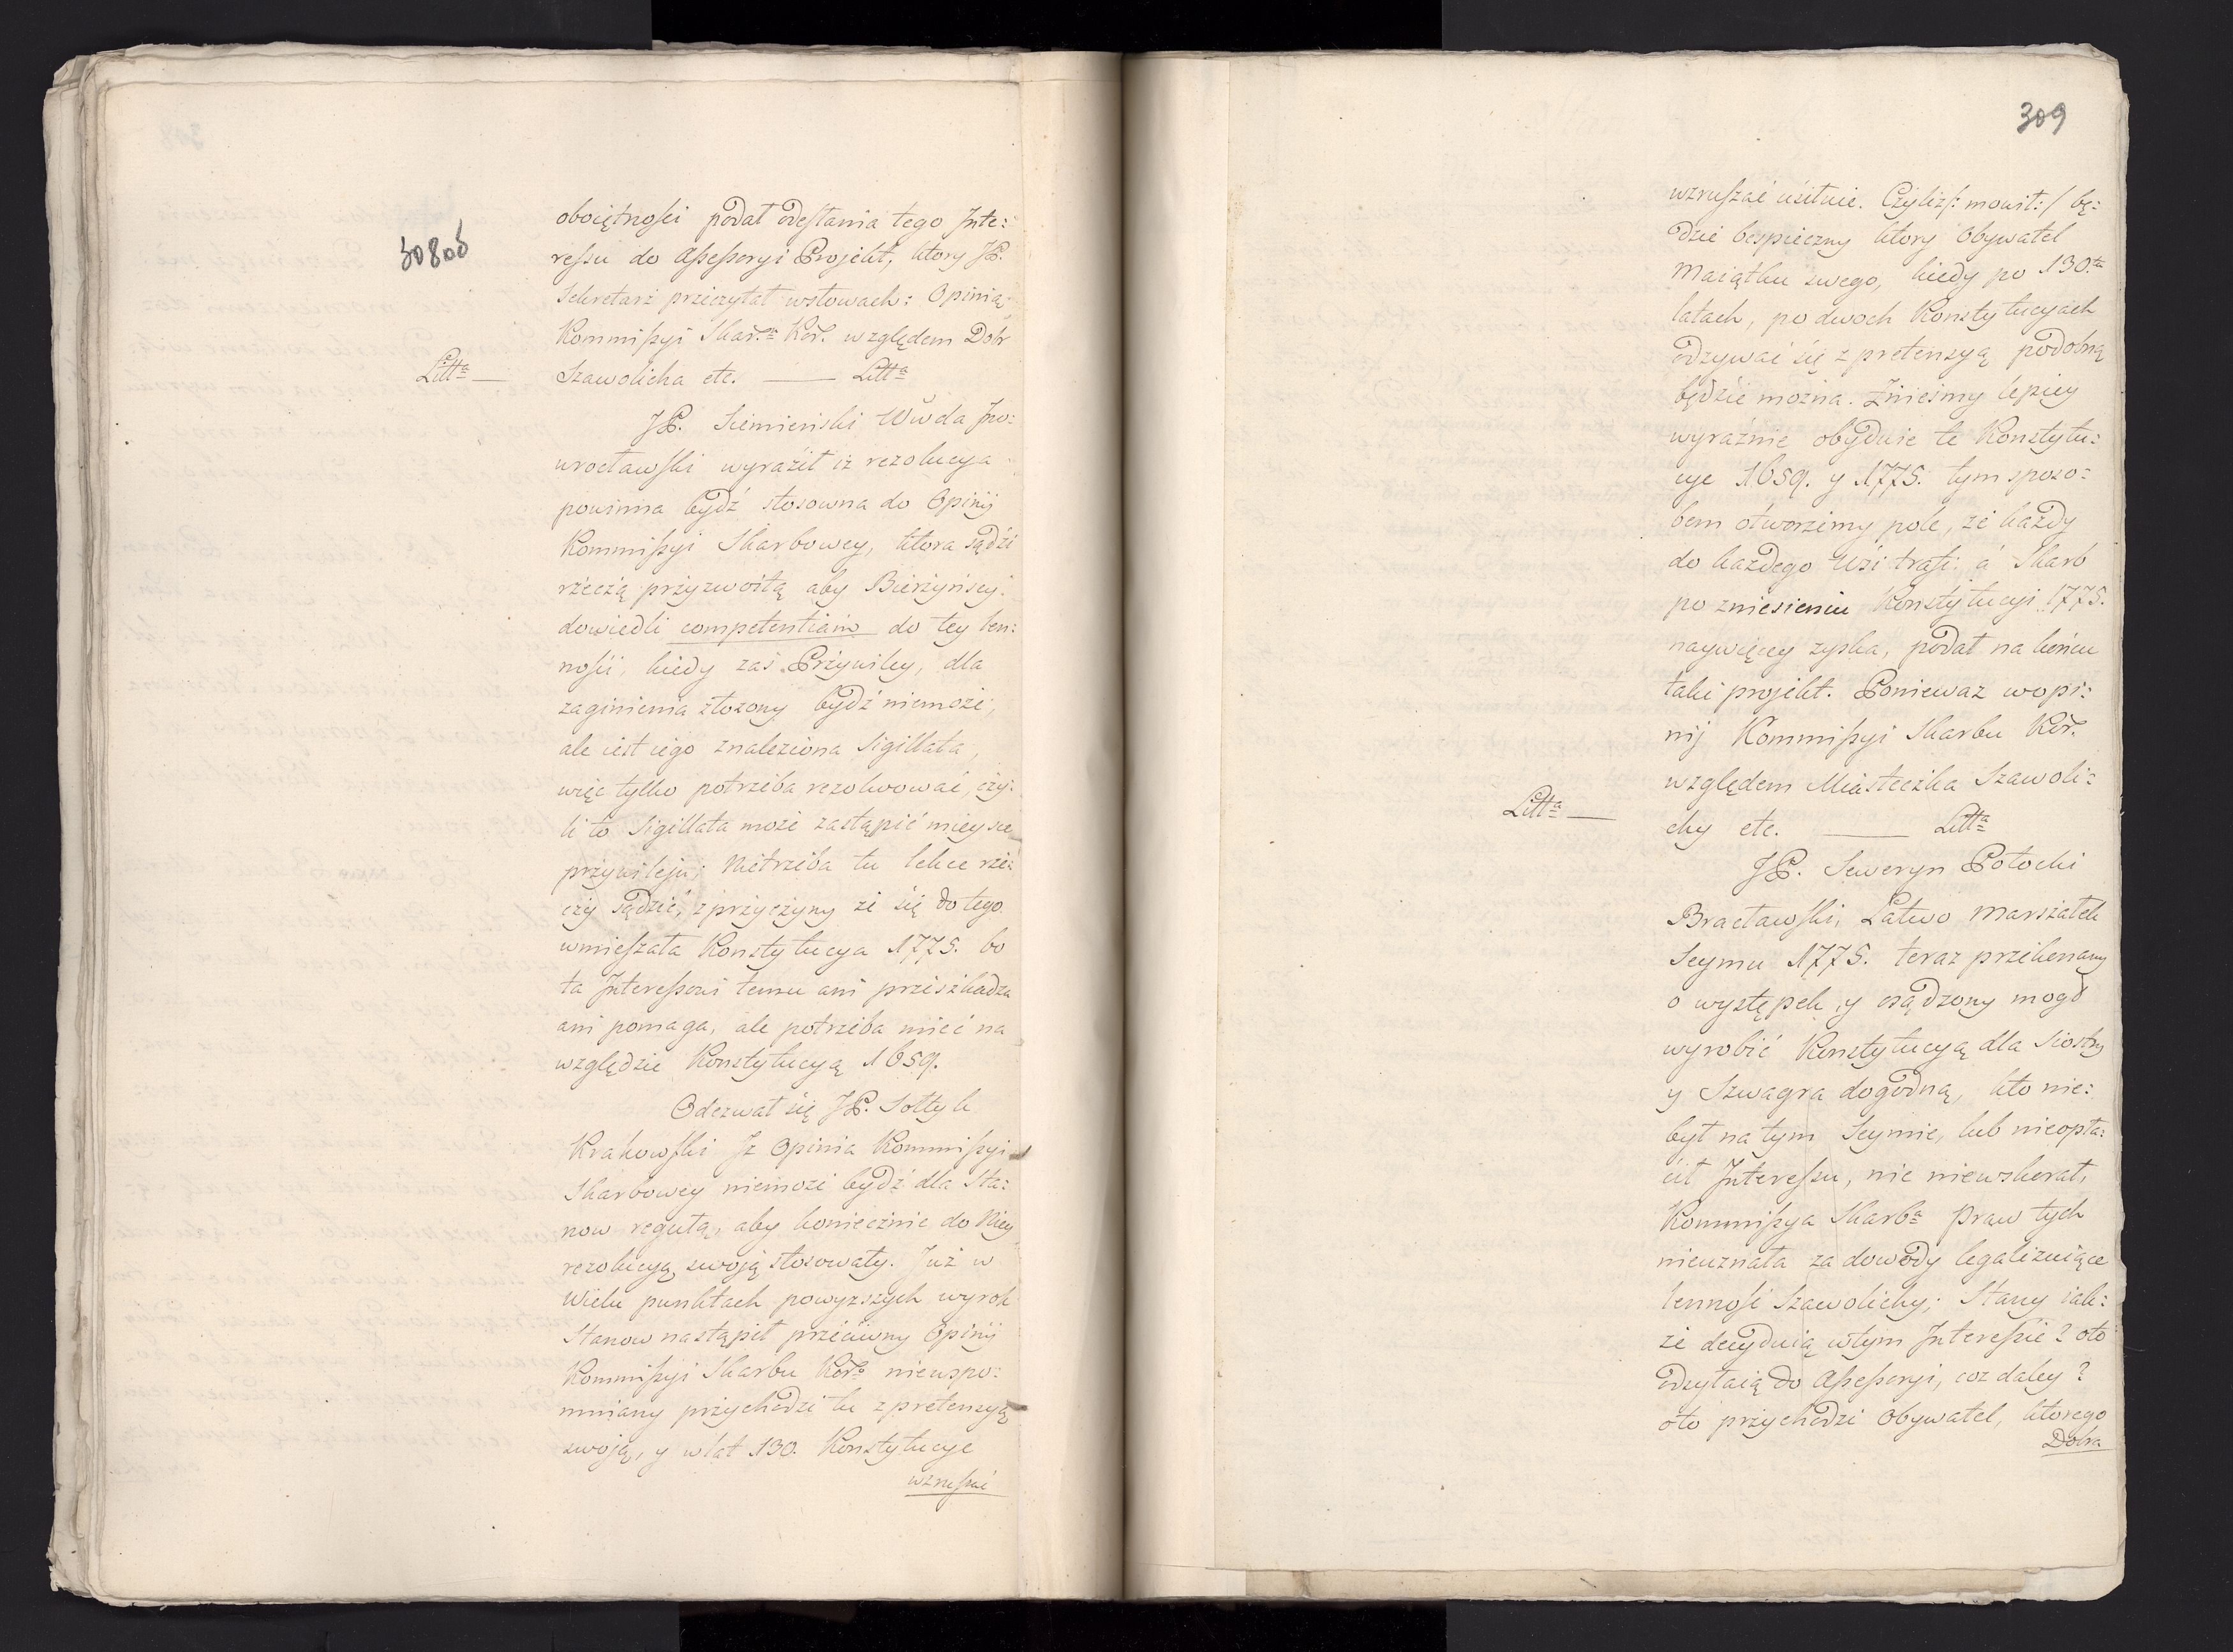 308od
obociętności podał odesłania tego Inte:
ressu do Assessoryi Projekt, ktory JP.
Sekretarz przeczytał wsłowach: Opinią
Kommissyi Skar.ª Kor. względem Dobr
Litta — Szawolicha etc. — Litta
JP. Siemieński Wwda Jno:
wrocławski wyraził iż rezolucya
powinna bydź stosowna do Opinij
Kommissyi Skarbowey, ktora sądzi
rzeczą przyzwoitą aby Bierzyńscy
dowiedli competentiam do tey len:
ności, kiedy zaś Przywiley, dla
zaginienia złozony bydź niemoże,
ale iest iego znaleziona Sigillata,
więc tylko potrzeba rezolwować, czy:
li to Sigillata może zastąpić mieysce
przywileju; Nietrzeba tu lekce rze:
czy sądzić, z przyczyny że się do tego
wmieszała Konstytucya 1775. bo
ta Interessowi temu ani przeszkadza
ani pomaga, ale potrzeba mieć na
względzie Konstytucyą 1659.
Odezwał się JP. Sołtyk
Krakowski Iz Opinia Kommissyi
Skarbowey niemoże bydź dla Sta:
now regułą, aby koniecznie do Niey
rezolucyą swoją stosowały. Już w
wielu punktach powyzszych wyrok
Stanow nastąpił przeciwny Opinij
Kommissyi Skarbu Kor. niewspo:
mniany przychodzi tu z pretensyą
swoją, y w lat 130. Konstytucye
wzruszać
309
wzruszać usiłuie. Czyliz /: mowił :/ bę:
dzie bespieczny ktory Obywatel
Maiątku swego, kiedy po 130.ta
latach, po dwoch Konstytucyach
odzywać się z pretensyą podobną
będzie mozna. Znieśmy lepiey
wyraźnie obydwie te Konstytu:
cye 1659. y 1775. tym sposo:
bem otworzemy pole, że kazdy
do kazdego Wsi trafi: a Skarb
po zniesieniu Konstytucyi 1775.
naywięcey zyska, podał na końcu
taki projekt. Poniewaz w opi:
nij Kommissyi Skarbu Kor.
względem Miasteczka Szawoli:
Litta — chy etc. — Litta
JP. Seweryn Potocki
Bracławski, Łatwo Marszałek
Seymu 1775. teraz przekonany
o występek y osądzony mogł
wyrobić Konstytucyą dla Siostry
y Szwagra dogodną, kto nie:
był na tym Seymie, lub nieopła:
cił Interessu, nic niewskorał,
Kommissya Skarbª praw tych
nieuznała za dowody legalizuiące
lenność Szawolichy; Stany iak:
że decyduią wtym Interessie? oto
odsyłaią do Assessoryi, coz daley?
oto przychodzi Obywatel, ktorego
Dobra